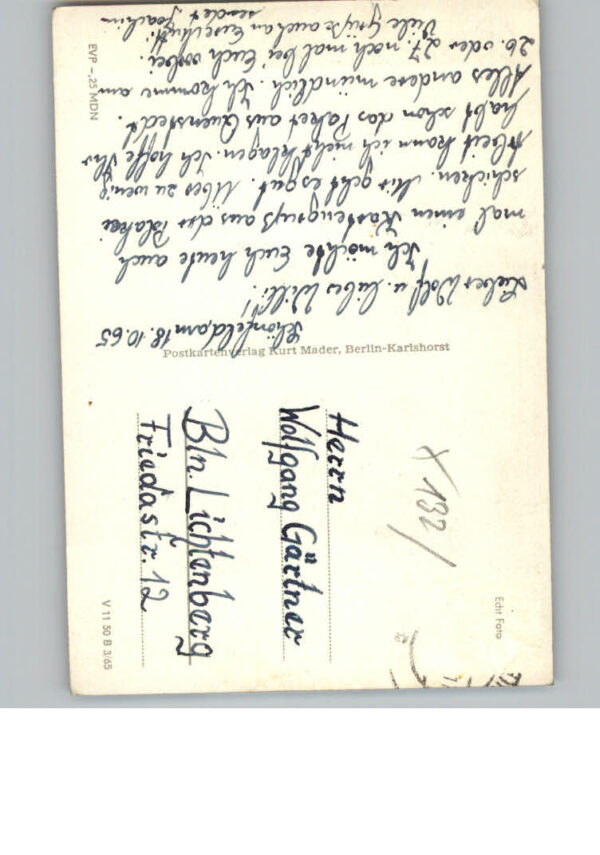 Schönfeld, am 18.10.65
Lieber Wolf u. lieber Willi!
Ich möchte Euch heute auch
mal einen Kartengruß aus der
schicken. Mir geht es gut. Über zu wenig
Arbeit kann ich nicht klagen. Ich hoffe Ihr
habt schon das Paket aus Quenstedt.
Alles andere mündlich. Ich komme am
26. oder 27. noch mal bei Euch vorbei.
Viele Grüße auch an
sendet Joachim
EVP -,25 MDN
Postkartenverlag Kurt Mader, Berlin-Karlshorst
Herrn
Wolfgang Gärtner
Bln. Lichtenberg
Friedastr. 12
X 132/
Echt Foto
V 11 50 B 3/65